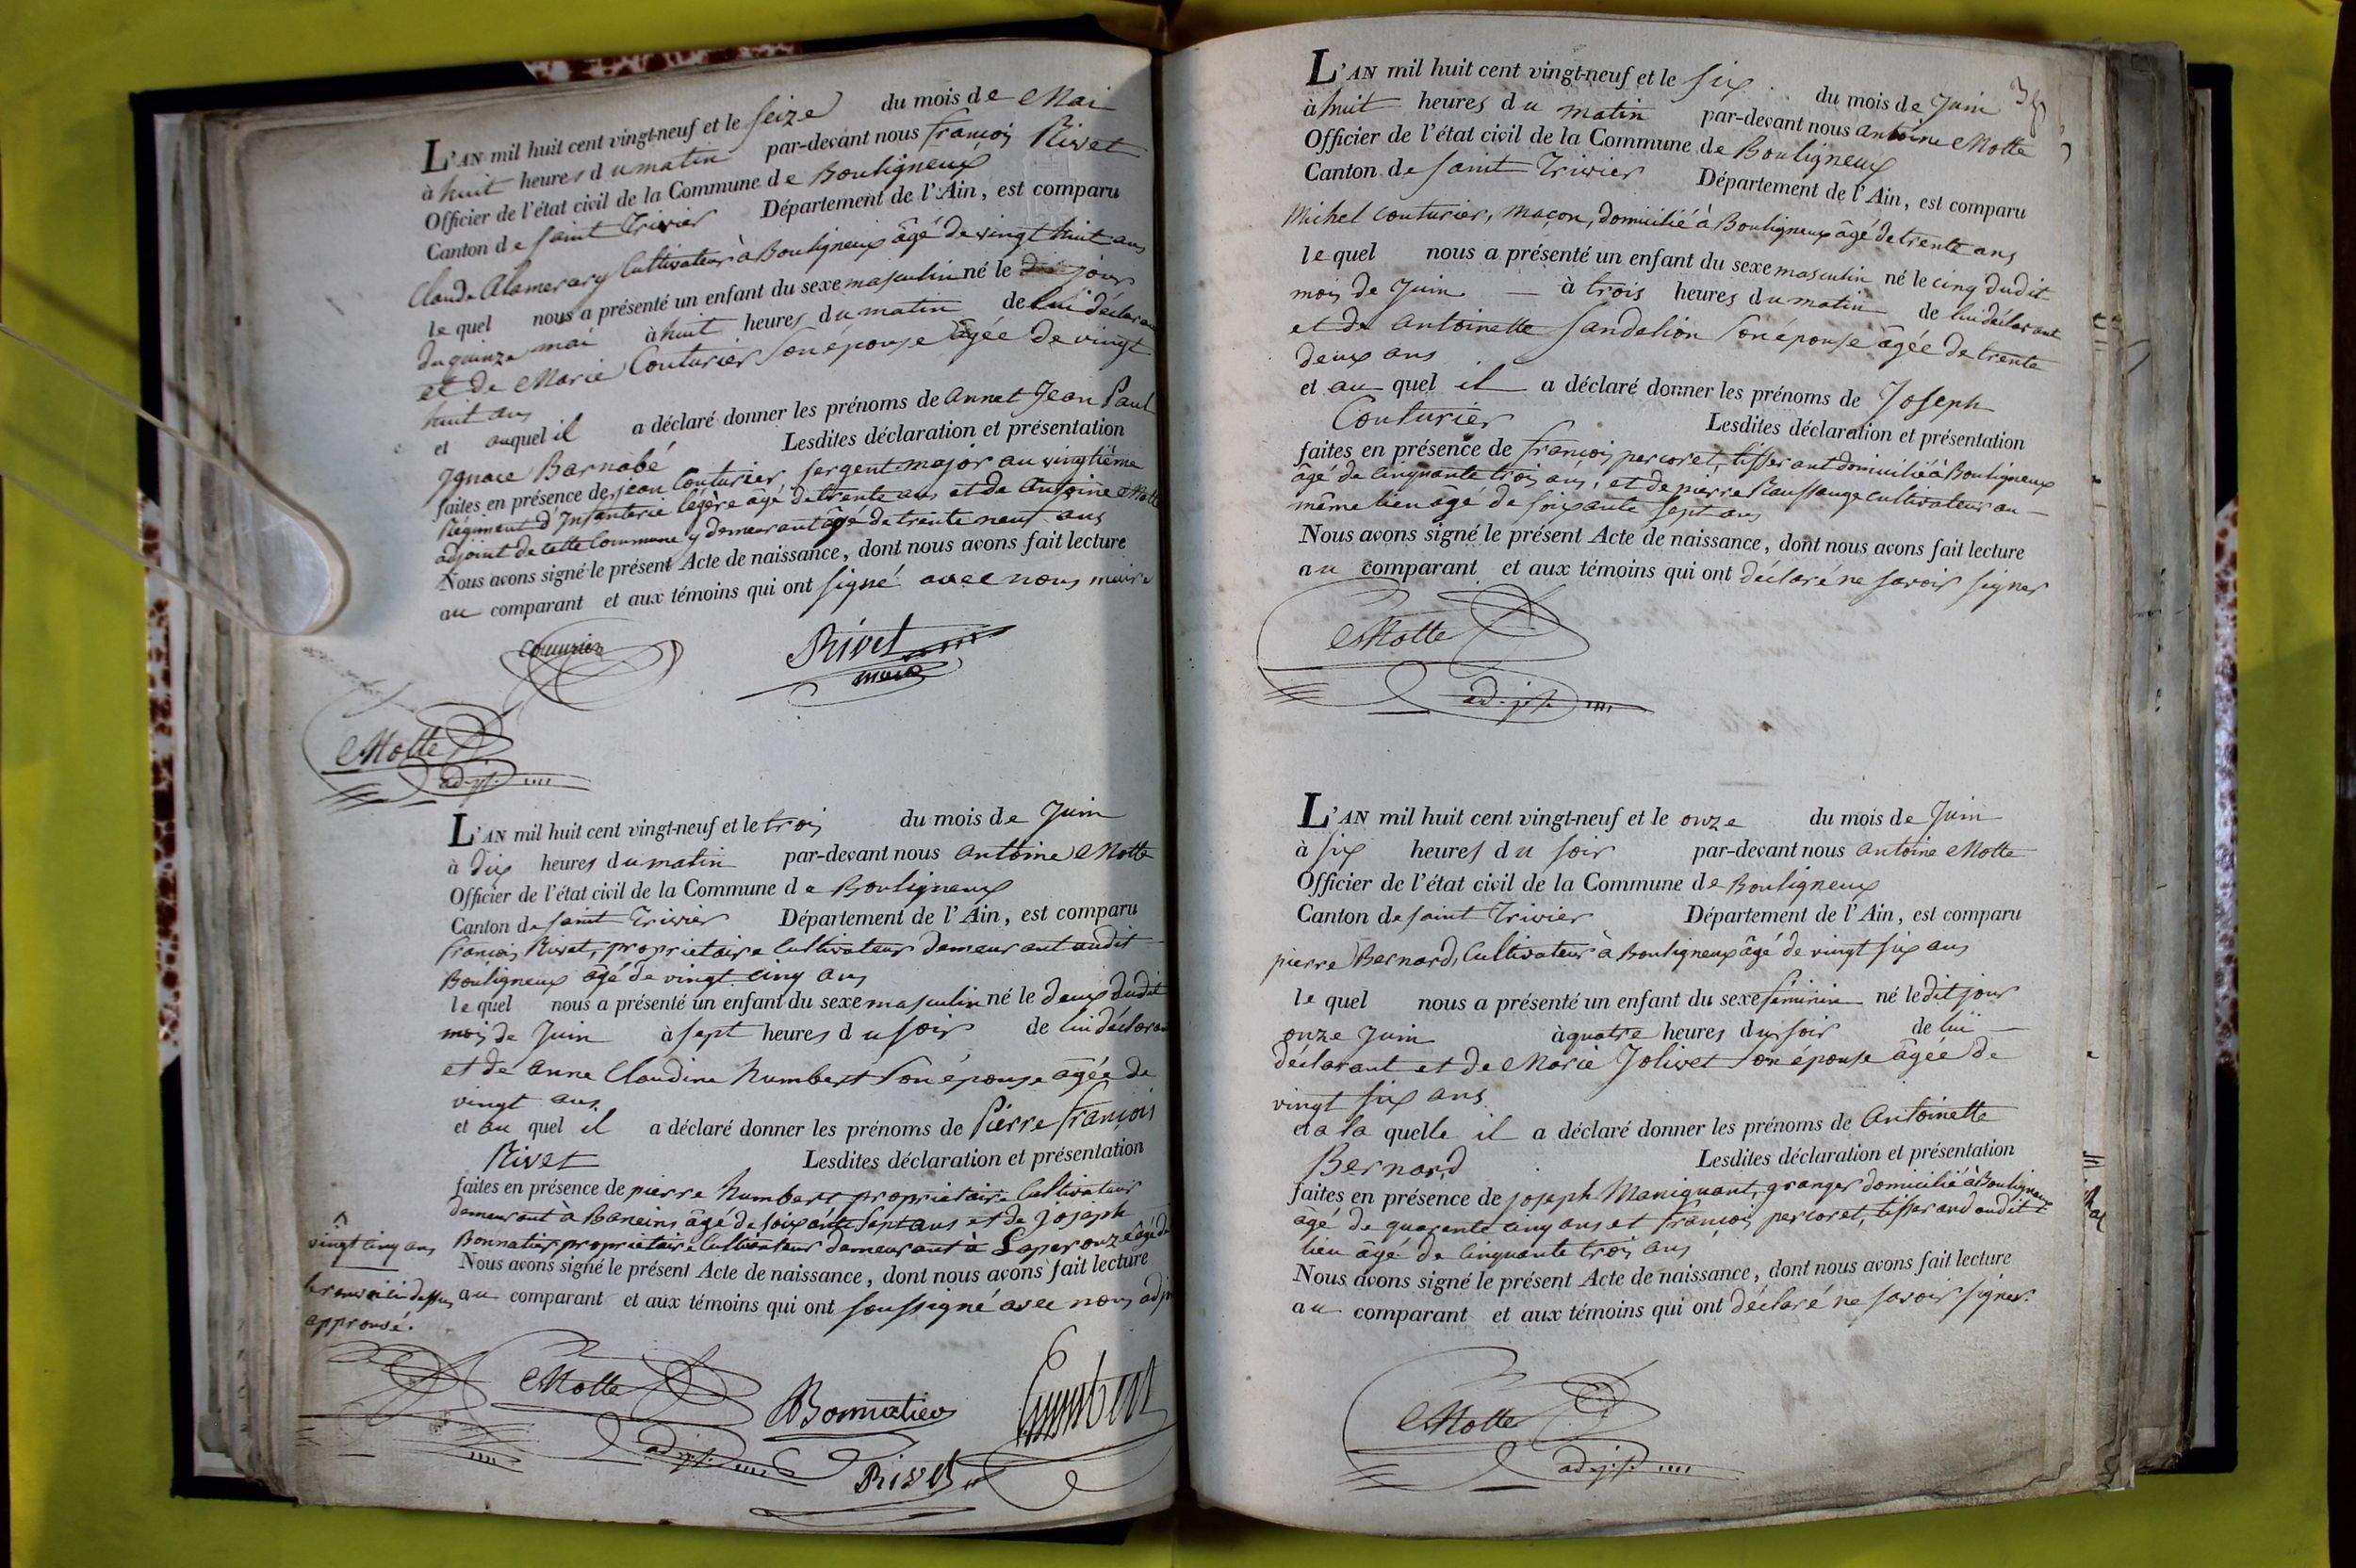 L'AN mil huit cent vingt-neuf et le seize du mois de Mai
à huit heures du matin par-devant nous françois Rivet
Officier de l'état civil de la Commune de Bouligneux
Canton de saint Trivier Département de l'Ain, est comparu
Claude Alamercery Cultivateur à Bouligneux âgé de vingt huit ans
lequel nous a présenté un enfant du sexe masculin né le jour
du quinze mai à huit heures du matin de lui déclarant
et de Marie Couturier son épouse âgée de vingt
huit ans
et auquel il a déclaré donner les prénoms de Annet Jean Paul
Ignace Barnabé Lesdites déclaration et présentation
faites en présence de jean Couturier, sergent-major au vingtième
Régiment d'Infanterie légère âgé de trente ans et de Antoine Motte
adjoint de cette Commune y demeurant âgé de trente neuf ans
Nous avons signé le présent Acte de naissance, dont nous avons fait lecture
au comparant et aux témoins qui ont signé avec nous maire
Couturier
Rivet
maire
Motte
adjt.
L'AN mil huit cent vingt-neuf et le trois du mois de Juin
à dix heures du matin par-devant nous antoine Motte
Officier de l'état civil de la Commune de Bouligneux
Canton de saint Trivier Département de l'Ain, est comparu
françois Rivet, proprietaire Cultivateur demeurant audit
Bouligneux âgé de vingt cinq ans
lequel nous a présenté un enfant du sexe masculin né le deux dudit
mois de Juin à sept heures du soir de lui déclarant
et de anne Claudine humbert son épouse âgée de
vingt ans
et au quel il a déclaré donner les prénoms de Pierre françois
Rivet Lesdites déclaration et présentation
faites en présence de pierre humbert proprietaire Cultivateur
demeurant à Baneins âgé de soixante sept ans et de Joseph
Bonnatier proprietaire Cultivateur demeurant à Laperouze âgé de
vingt cinq ans
Nous avons signé le présent Acte de naissance, dont nous avons fait lecture
le renvoi ci dessus
approuvé.
au comparant et aux témoins qui ont soussigné avec nous adjt
Motte
adjt.
Bonnatier
humbert
Rivet
L'AN mil huit cent vingt-neuf et le six du mois de Juin
à huit heures du matin par-devant nous antoine Motte
Officier de l'état civil de la Commune de Bouligneux
Canton de saint Trivier Département de l'Ain, est comparu
Michel couturier, maçon, domicilié à Bouligneux âgé de trente ans
lequel nous a présenté un enfant du sexe masculin né le cinq dudit
mois de Juin à trois heures du matin de lui déclarant
et de antoinette Sandelion son épouse âgée de trente
deux ans
et au quel il a déclaré donner les prénoms de Joseph
Couturier Lesdites déclaration et présentation
faites en présence de françois percoret, tisserant domicilié à Bouligneux
âgé de cinquante trois ans, et de pierre Raussange cultivateur au
même lieu âgé de soixante sept ans
Nous avons signé le présent Acte de naissance, dont nous avons fait lecture
au comparant et aux témoins qui ont déclaré ne savoir signer
Motte
adjt.
L'AN mil huit cent vingt-neuf et le onze du mois de Juin
à six heures du soir par-devant nous antoine Motte
Officier de l'état civil de la Commune de Bouligneux
Canton de saint Trivier Département de l'Ain, est comparu
pierre Bernard, Cultivateur à Bouligneux âgé de vingt six ans
lequel nous a présenté un enfant du sexe féminin né ledit jour
onze Juin à quatre heures du soir de lui
déclarant et de Marie Jolivet son épouse âgée de
vingt six ans
et a la quelle il a déclaré donner les prénoms de Antoinette
Bernard Lesdites déclaration et présentation
faites en présence de joseph Maniguant, granger domicilié à Bouligneux
âgé de quarente cinq ans et françois percoret, tisserand audit
lieu âgé de cinquante trois ans
Nous avons signé le présent Acte de naissance, dont nous avons fait lecture
au comparant et aux témoins qui ont déclaré ne savoir signer.
Motte
adjt.